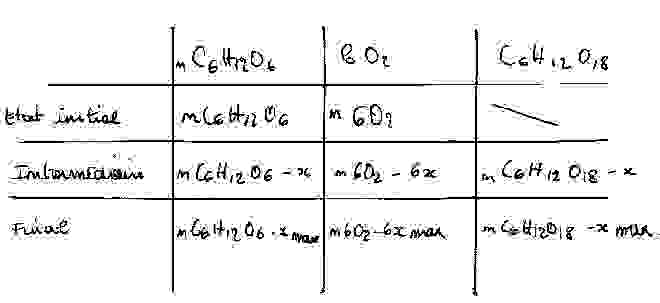 n C6H12O6 6 O2 C6H12O18
Etat initial n C6H12O6 n 6O2
Intermédiaire n C6H12O6 - x n 6O2 - 6x n C6H12O18 - x
Final n C6H12O6 - x max n 6O2 - 6x max n C6H12O18 - x max